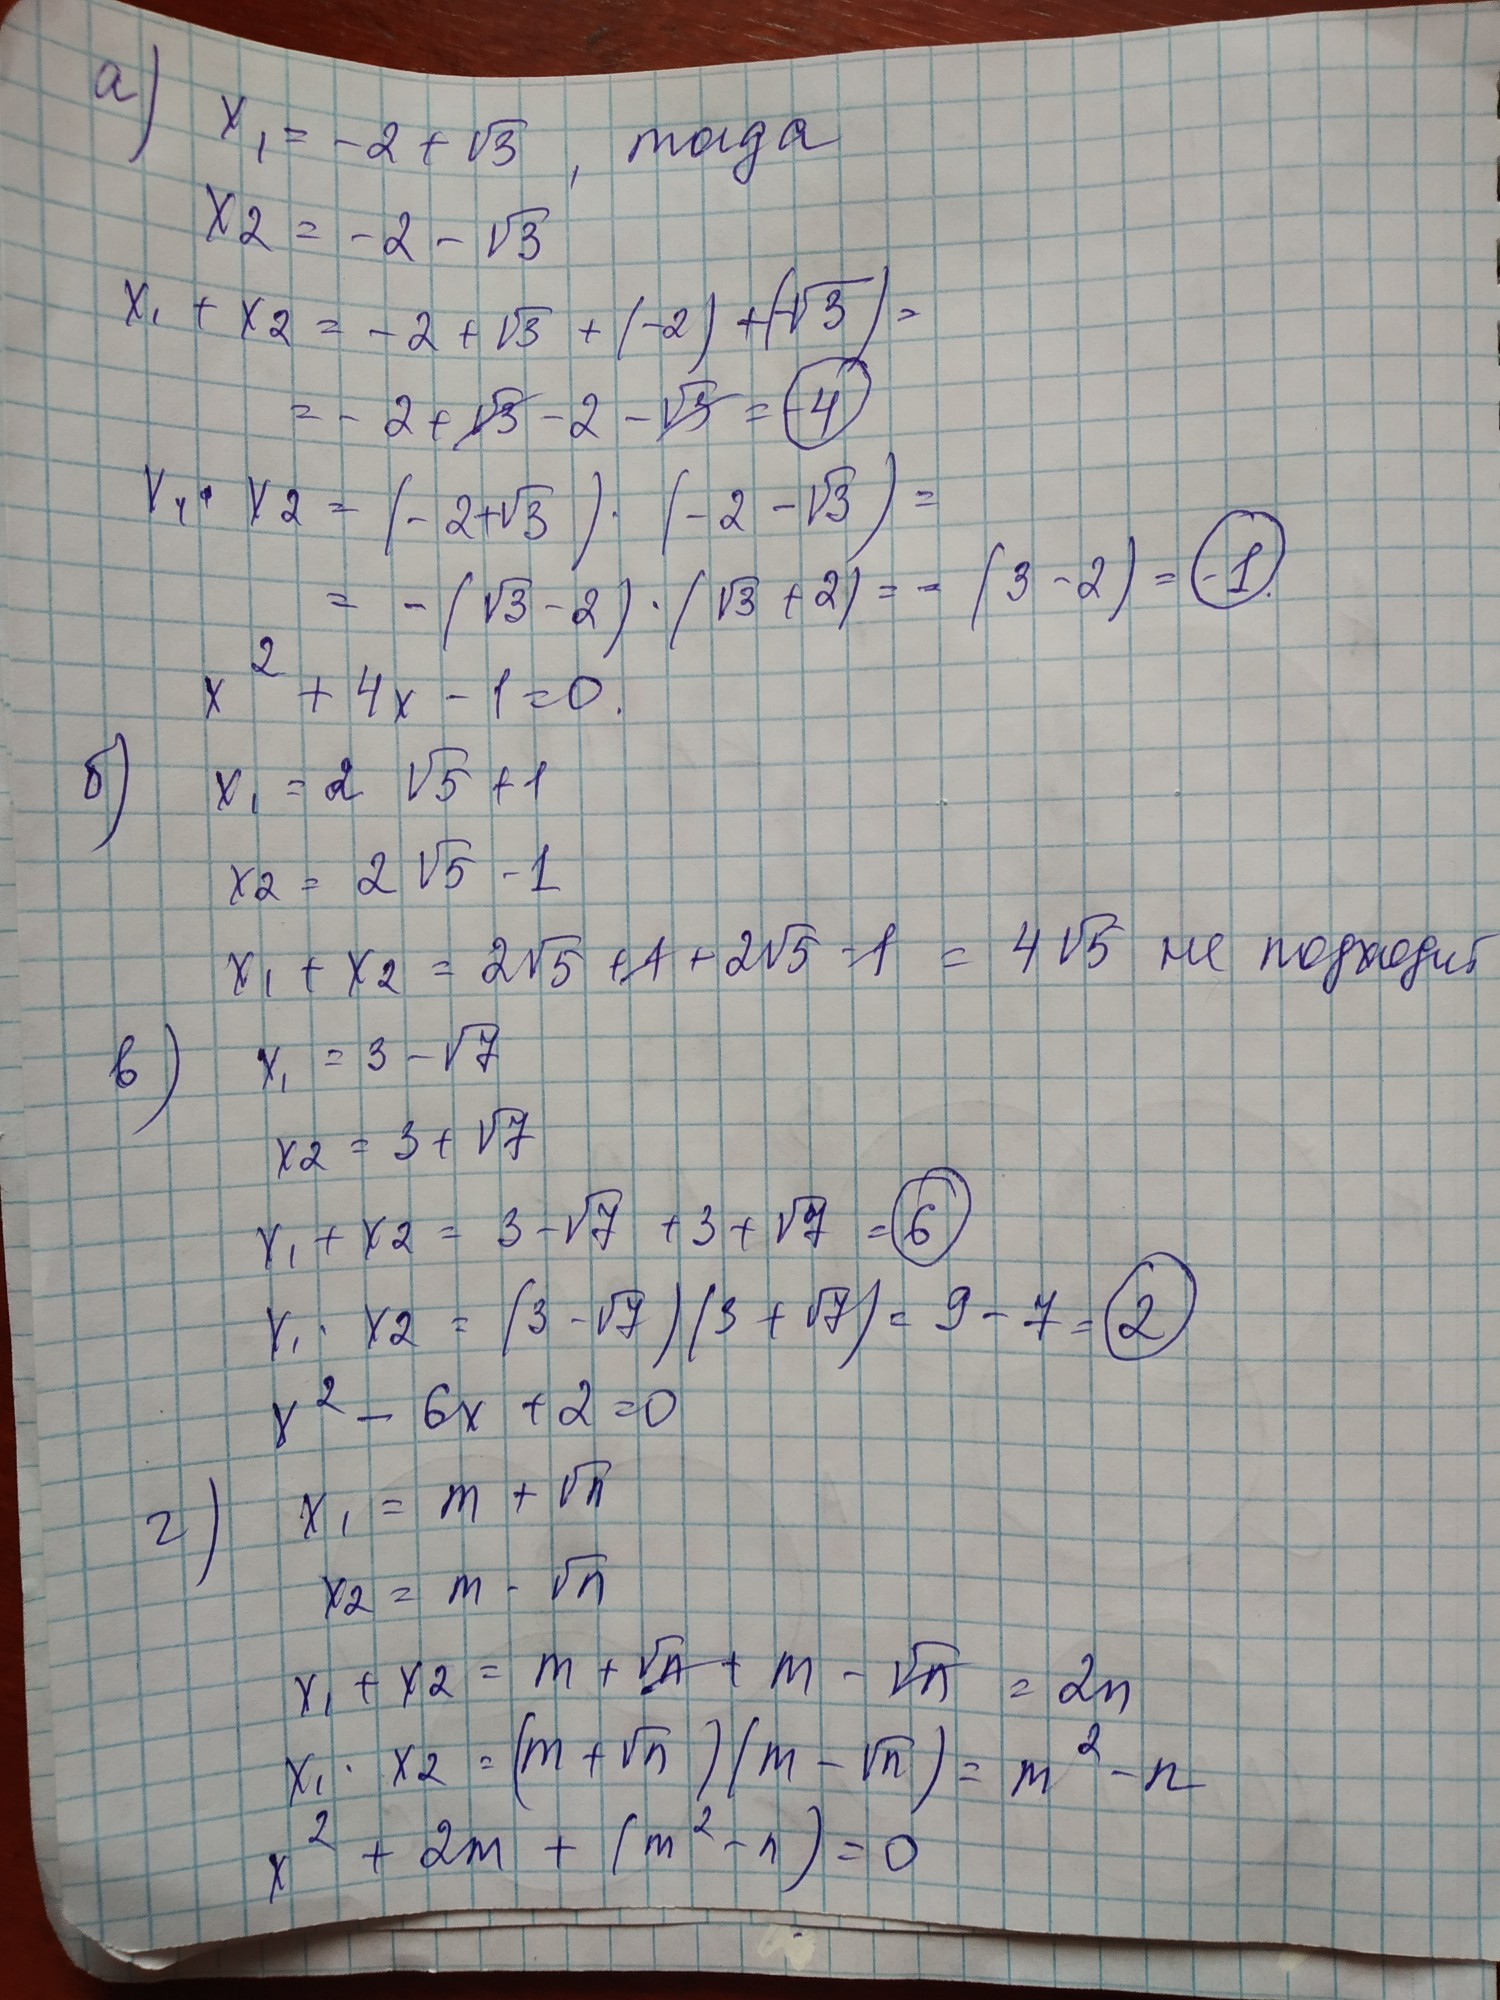 а) x₁ = -2 + √3 , тогда
x2 = -2 - √3
x₁ + x2 = -2 + √3 + (-2) + (-√3) =
= -2 + √3 - 2 - √3 = -4
x₁ · x2 = (-2+√3) · (-2 - √3) =
= -(√3 - 2) · (√3 + 2) = - (3 - 2) = -1.
x² + 4x - 1 = 0.
б) x₁ = 2 √5 + 1
x2 = 2 √5 - 1
x₁ + x2 = 2√5 + 1 + 2√5 - 1 = 4√5 не подходит
в) x₁ = 3 - √7
x2 = 3 + √7
x₁ + x2 = 3 - √7 + 3 + √7 = 6
x₁ · x2 = (3 - √7)(3 + √7) = 9 - 7 = 2
x² - 6x + 2 = 0
г) x₁ = m + √n
x2 = m - √n
x₁ + x2 = m + √n + m - √n = 2n
x₁ · x2 = (m + √n)(m - √n) = m² - n
x² + 2m + (m² - n) = 0